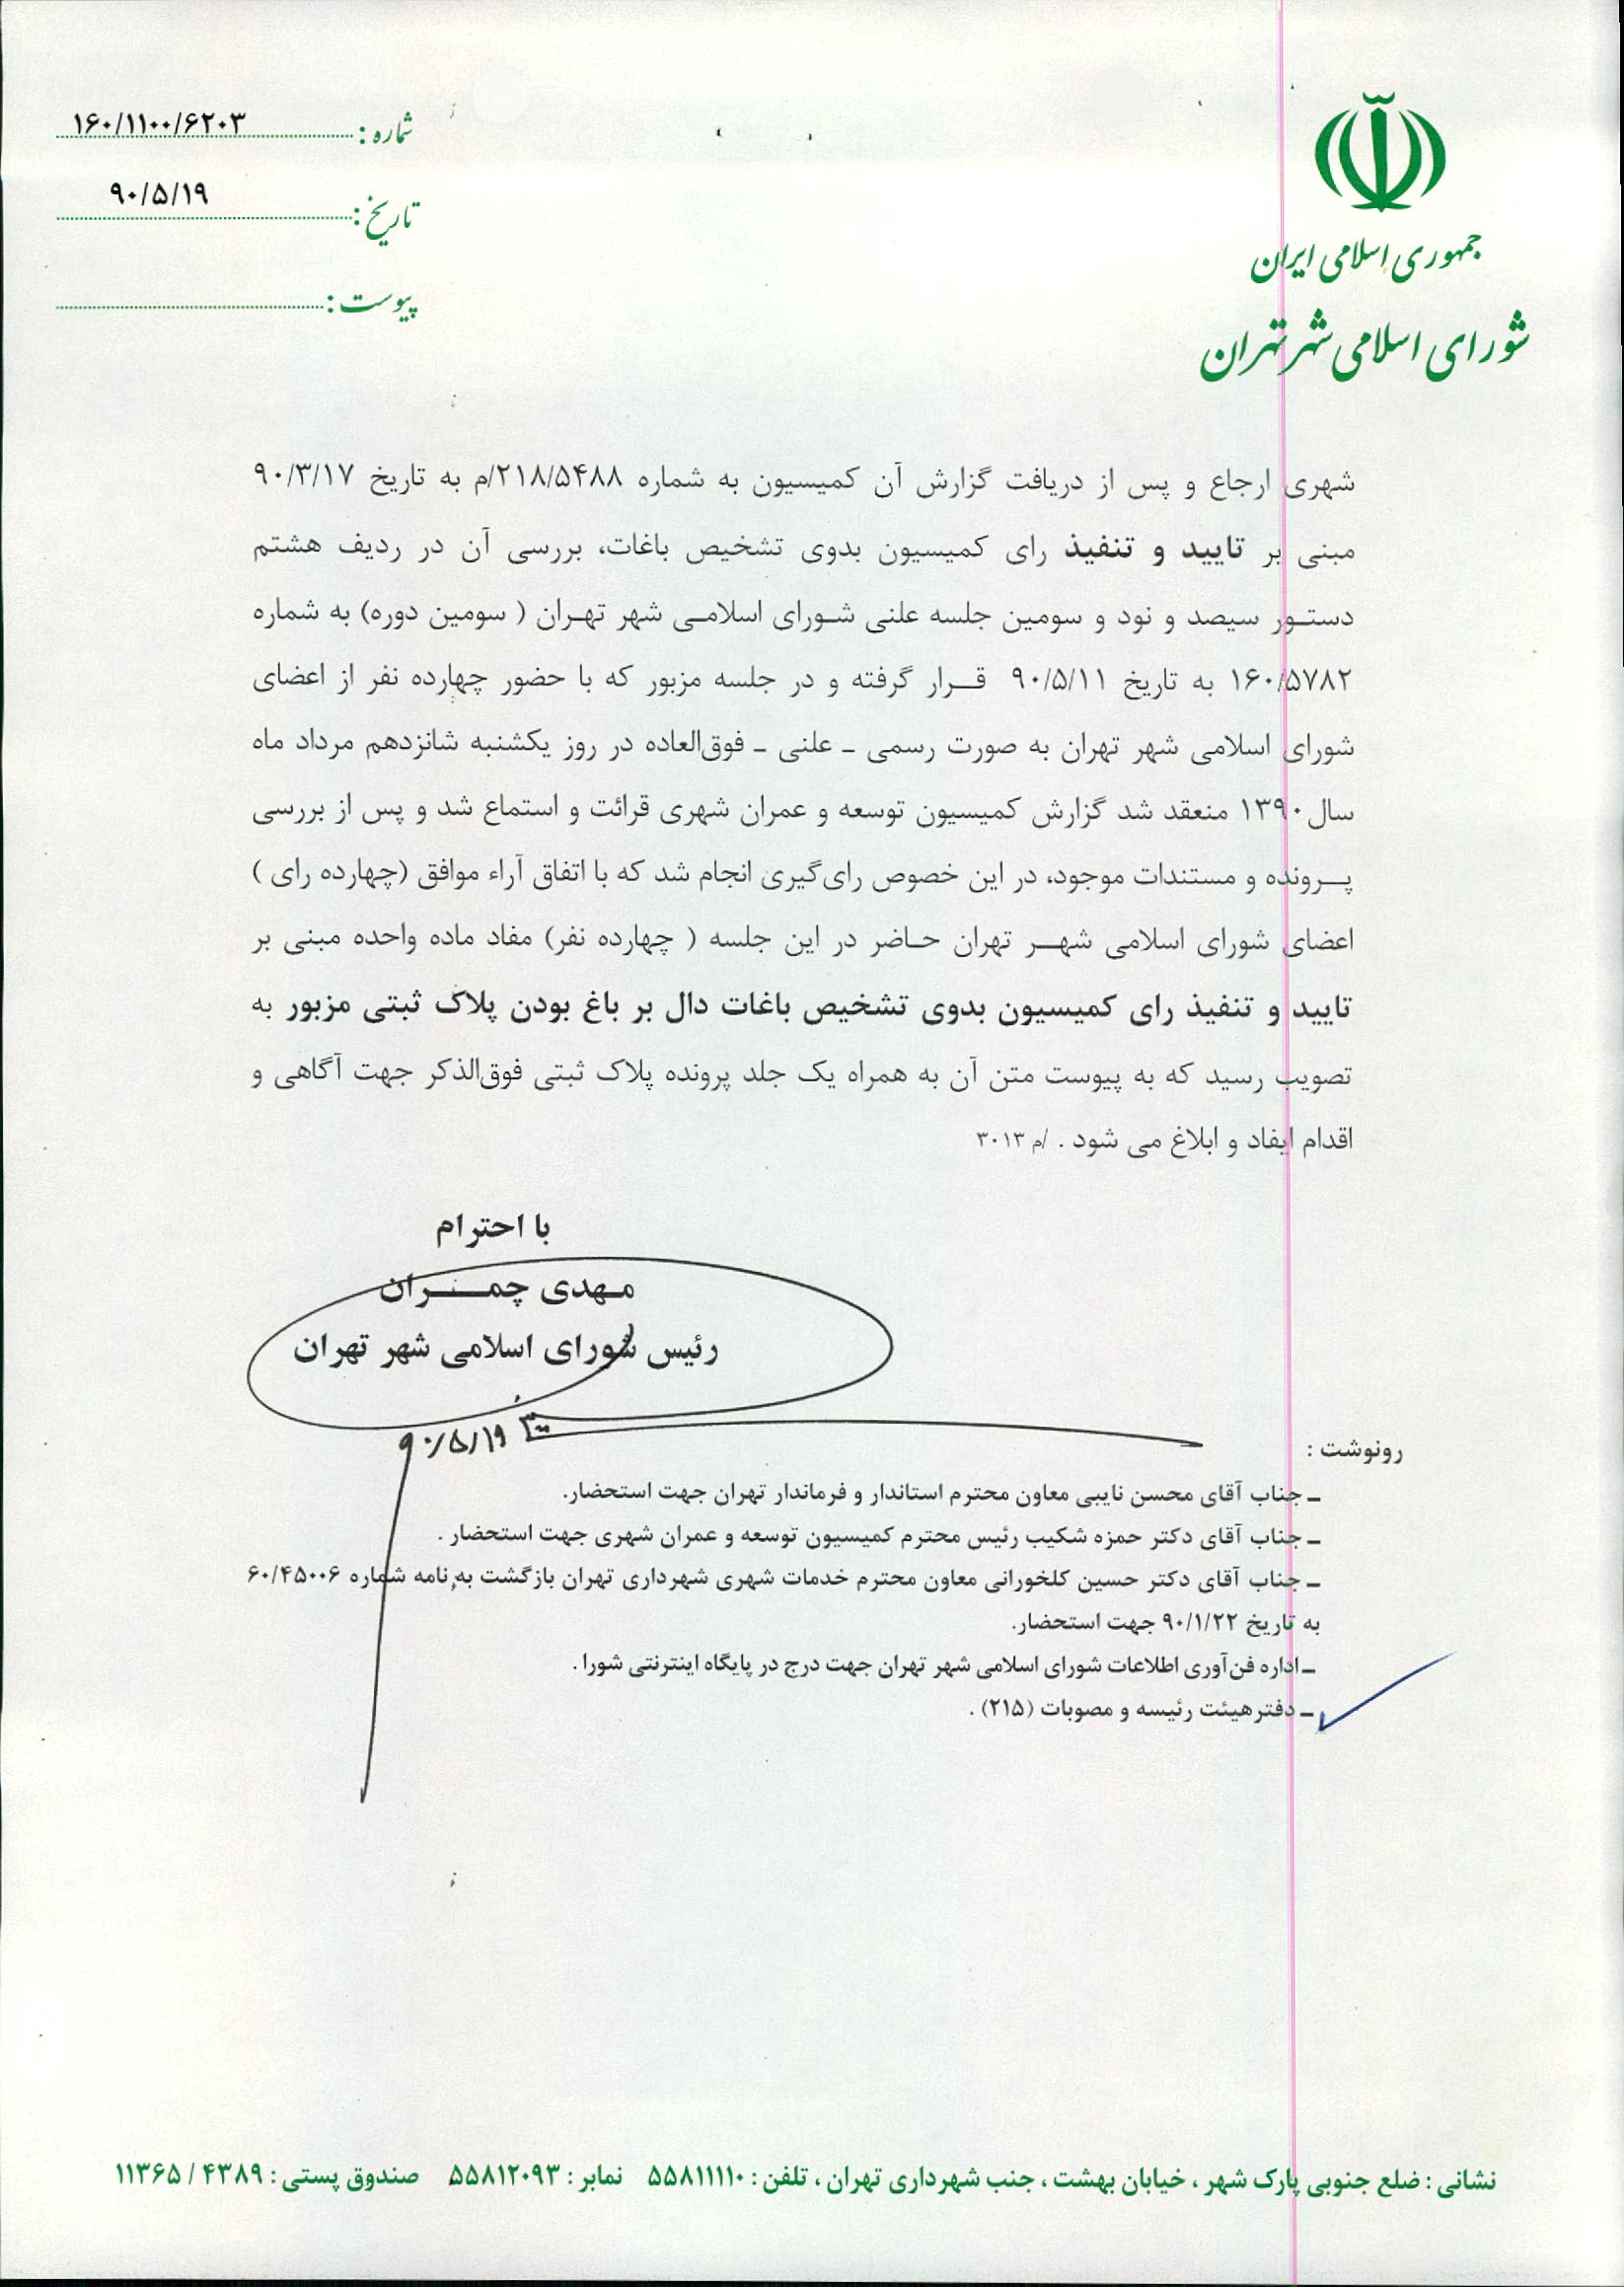 جمهوری اسلامی ایران
شورای اسلامی شهر تهران
شماره : ۱۶۰/۱۱۰۰/۶۲۰۳
تاریخ : ۹۰/۵/۱۹
پیوست :
شهری ارجاع و پس از دریافت گزارش آن کمیسیون به شماره ۲۱۸/۵۴۸۸/م به تاریخ ۹۰/۳/۱۷
مبنی بر تایید و تنفیذ رای کمیسیون بدوی تشخیص باغات، بررسی آن در ردیف هشتم
دستور سیصد و نود و سومین جلسه علنی شورای اسلامی شهر تهران ( سومین دوره) به شماره
۱۶۰/۵۷۸۲ به تاریخ ۹۰/۵/۱۱ قرار گرفته و در جلسه مزبور که با حضور چهارده نفر از اعضای
شورای اسلامی شهر تهران به صورت رسمی ـ علنی ـ فوق‌العاده در روز یکشنبه شانزدهم مرداد ماه
سال ۱۳۹۰ منعقد شد گزارش کمیسیون توسعه و عمران شهری قرائت و استماع شد و پس از بررسی
پرونده و مستندات موجود، در این خصوص رای‌گیری انجام شد که با اتفاق آراء موافق (چهارده رای )
اعضای شورای اسلامی شهر تهران حاضر در این جلسه ( چهارده نفر) مفاد ماده واحده مبنی بر
تایید و تنفیذ رای کمیسیون بدوی تشخیص باغات دال بر باغ بودن پلاک ثبتی مزبور به
تصویب رسید که به پیوست متن آن به همراه یک جلد پرونده پلاک ثبتی فوق‌الذکر جهت آگاهی و
اقدام ایفاد و ابلاغ می شود . /م ۳۰۱۳
با احترام
مهدی چمران
رئیس شورای اسلامی شهر تهران
۹۰/۵/۱۹
رونوشت :
ـ جناب آقای محسن نایبی معاون محترم استاندار و فرماندار تهران جهت استحضار.
ـ جناب آقای دکتر حمزه شکیب رئیس محترم کمیسیون توسعه و عمران شهری جهت استحضار .
ـ جناب آقای دکتر حسین کلخورانی معاون محترم خدمات شهری شهرداری تهران بازگشت به نامه شماره ۶۰/۴۵۰۰۶
به تاریخ ۹۰/۱/۲۲ جهت استحضار.
ـ اداره فن‌آوری اطلاعات شورای اسلامی شهر تهران جهت درج در پایگاه اینترنتی شورا .
ـ دفتر هیئت رئیسه و مصوبات (۲۱۵) .
نشانی : ضلع جنوبی پارک شهر ، خیابان بهشت ، جنب شهرداری تهران ، تلفن : ۵۵۸۱۱۱۱۰ نمابر : ۵۵۸۱۲۰۹۳ صندوق پستی : ۴۳۸۹ / ۱۱۳۶۵